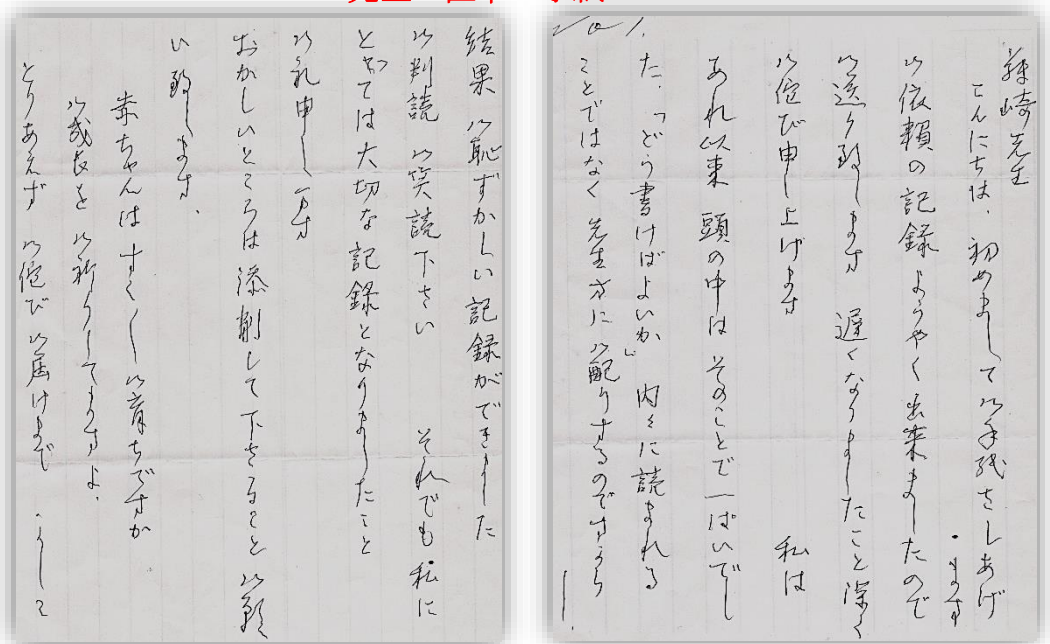 先生
こんにちは、初めまして御手紙をしあげ
ます
御依頼の記録ようやく出来ましたので
御送り致します 遅くなりましたこと深く
御侘び申し上げます 私は
あれ以来 頭の中はそのことで一ぱいでし
た。「どう書けばよいか」内々に読まれる
ことではなく先生方に御配りするのですから
結果 御恥ずかしい記録ができました
御判読 御笑読下さい それでも私に
とっては大切な記録となりましたこと
御礼申します
おかしいところは添削して下さること御願
い致します。
赤ちゃんはすくすく御育ちですか
御成長を御祈りしてますよ。
とりあえず 御侘び御届けまで